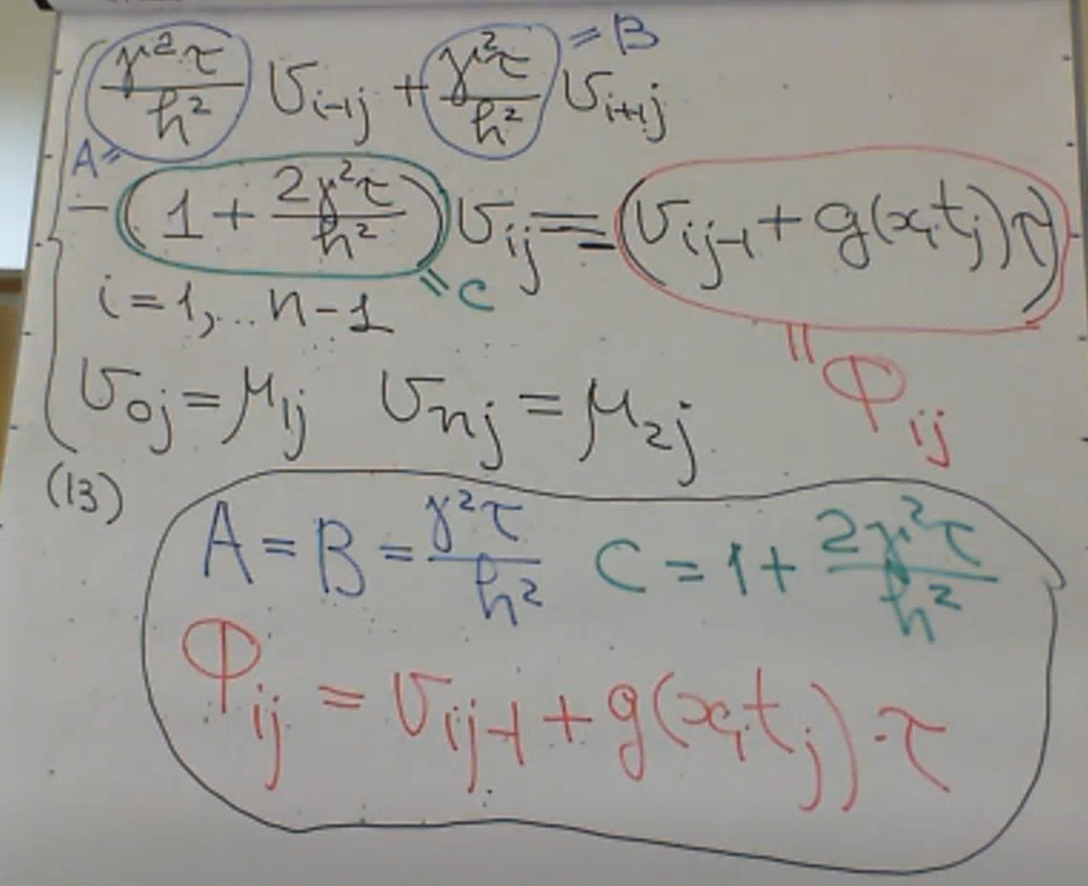 γ²τ/h² υᵢ₋₁ⱼ + γ²τ/h² υᵢ₊₁ⱼ = B
A =
− (1 + 2γ²τ/h²) υᵢⱼ = (υᵢⱼ₋₁ + g(xᵢ,tⱼ)τ)
i = 1,...n-1 = C
υ₀ⱼ = μ₁ⱼ υₙⱼ = μ₂ⱼ = Φᵢⱼ
(13)
A = B = γ²τ/h² C = 1 + 2γ²τ/h²
Φᵢⱼ = υᵢⱼ₋₁ + g(xᵢ,tⱼ)·τ